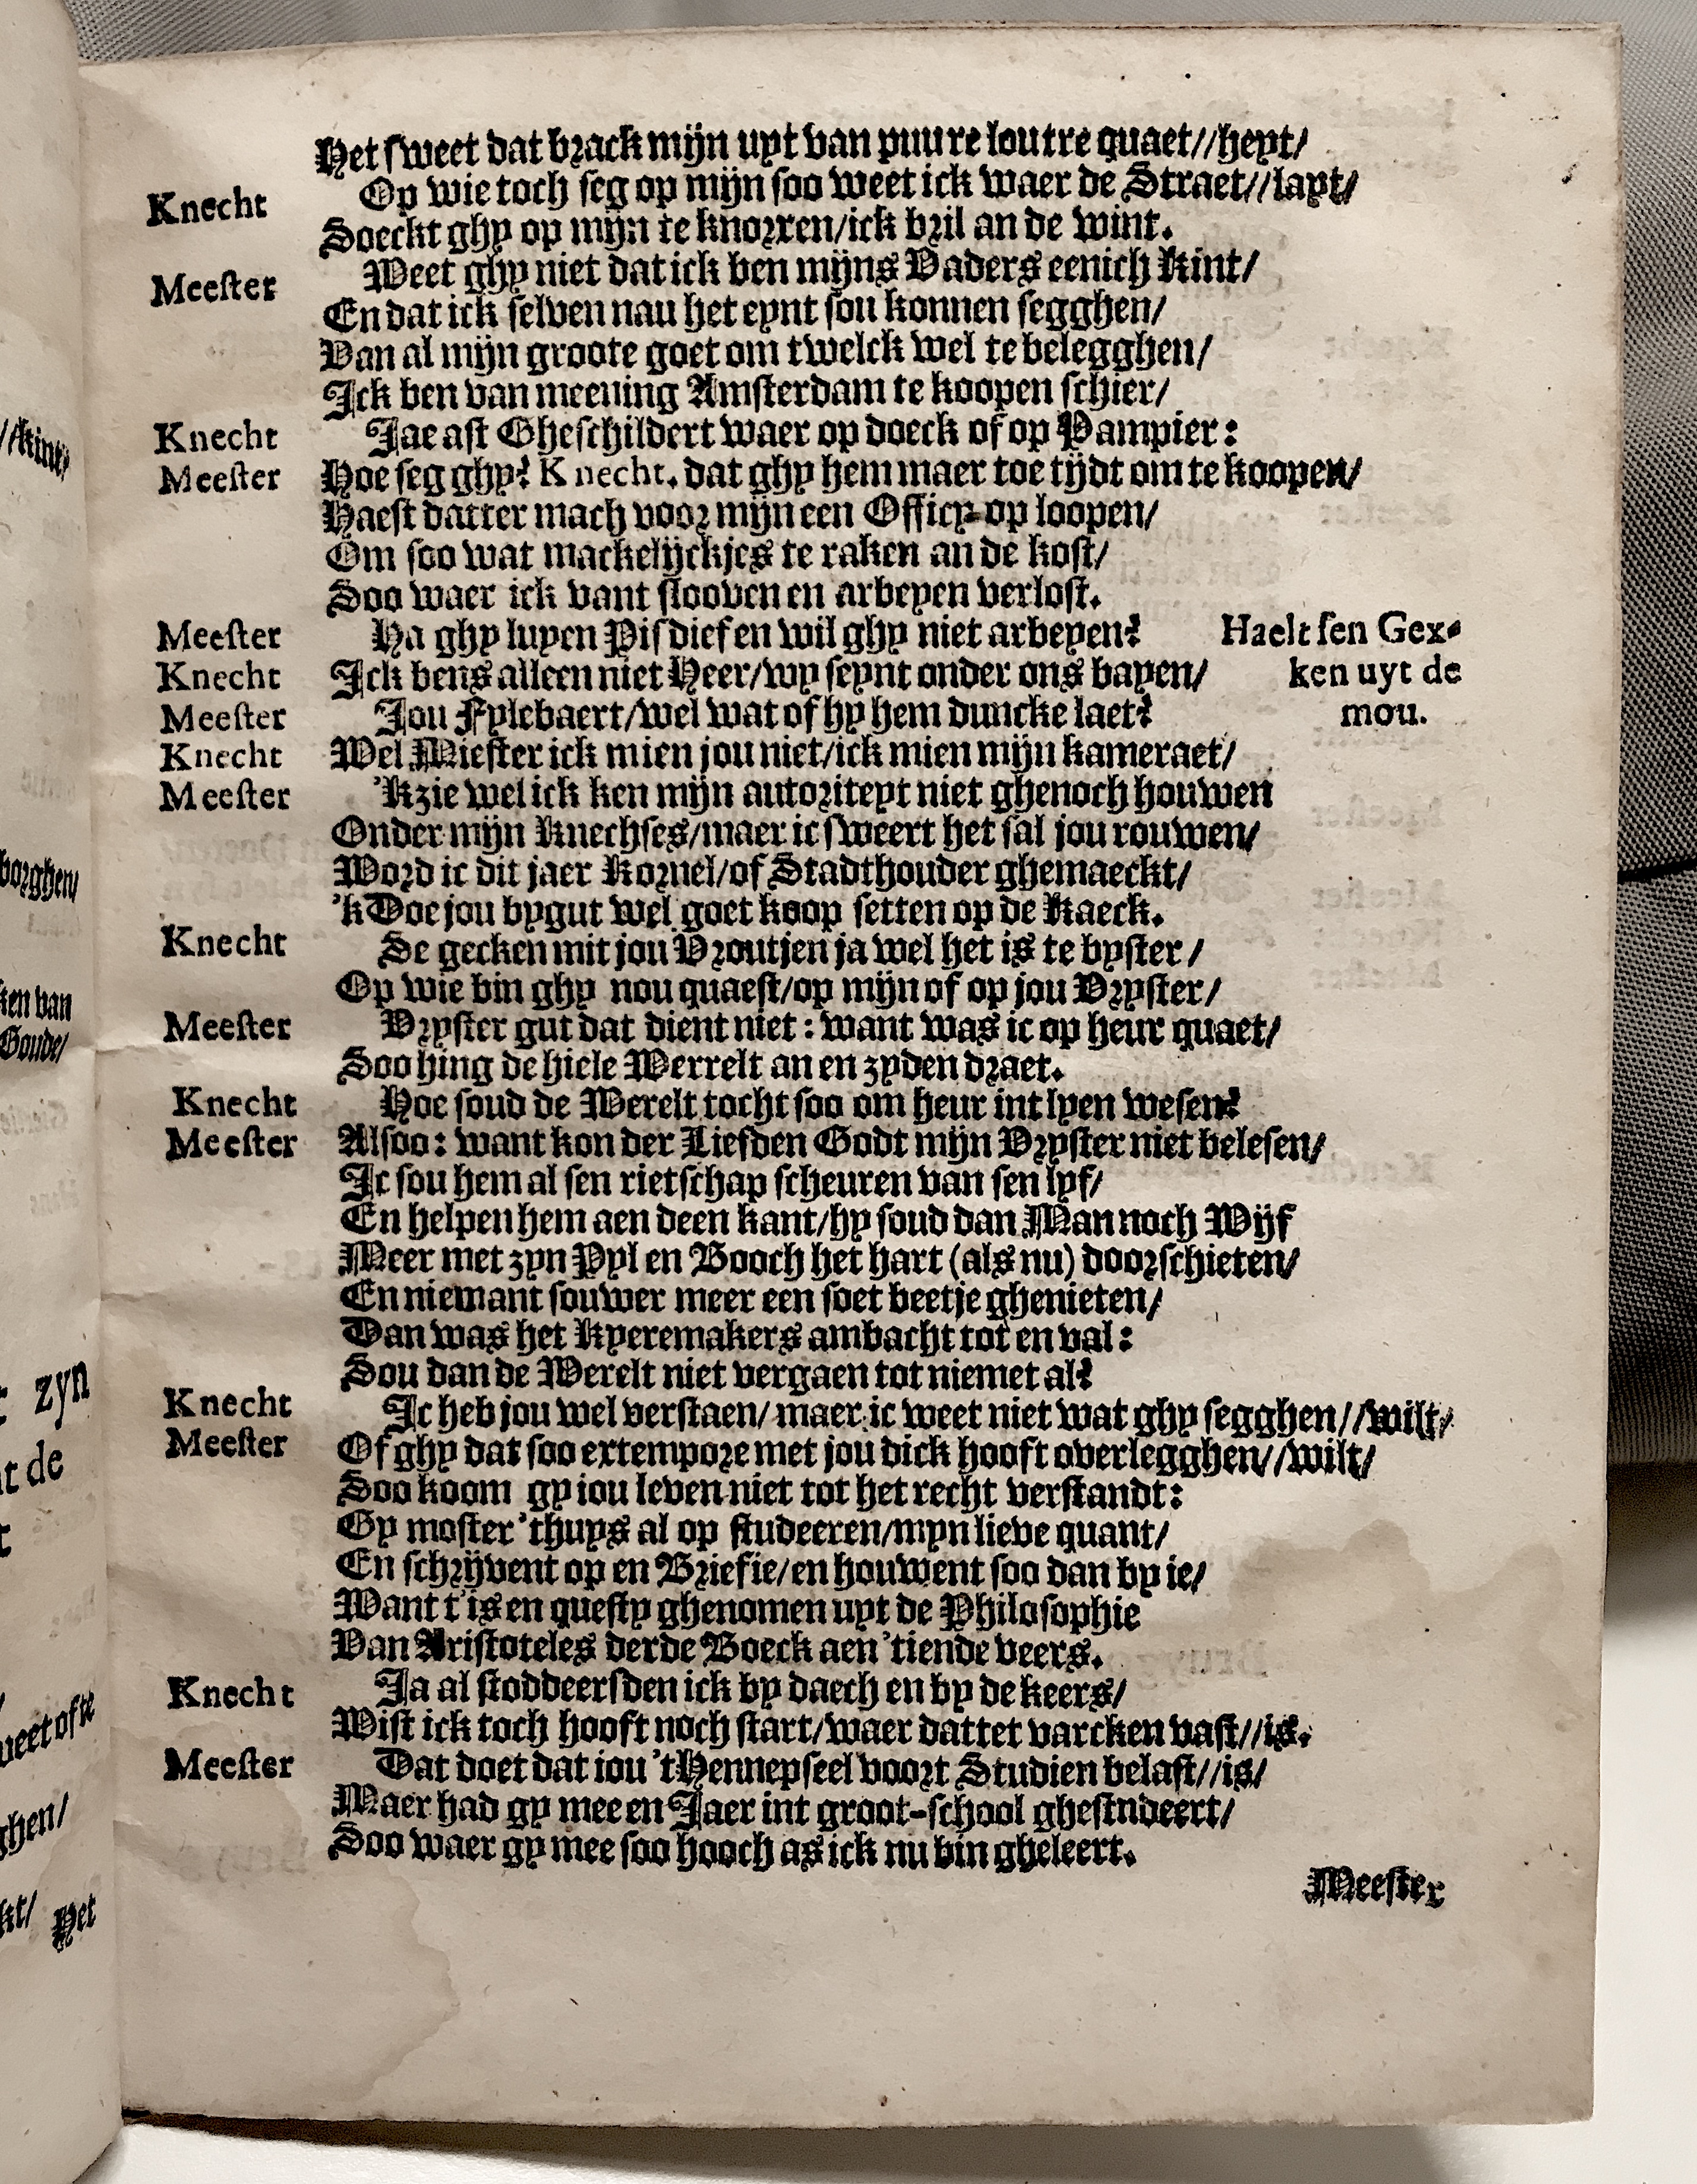 Het sweet dat brack mijn uyt van puure loutre quaet//heyt/
Knecht Op wie toch seg op mijn soo weet ick waer de Straet//layt/
Soeckt ghy op mijn te knorren/ick bril an de wint.
Meester Weet ghy niet dat ick ben mijns Vaders eenich Kint/
En dat ick selven nau het eynt sou konnen segghen/
Van al mijn groote goet om twelck wel te belegghen/
Ick ben van meening Amsterdam te koopen schier/
Knecht Jae ast Gheschildert waer op doeck of op Pampier:
Meester Hoe seg ghy? Knecht. dat ghy hem maer toe tijdt om te koopen/
Haest datter mach voor mijn een Officy-op loopen/
Om soo wat mackelijckjes te raken an de kost/
Soo waer ick vant slooven en arbeyen verlost.
Meester Ha ghy luyen Pisdief en wil ghy niet arbeyen? Haelt sen Gex-
Knecht Ick bens alleen niet Heer/wy seynt onder ons bayen/ ken uyt de
Meester Jou Fylebaert/wel wat of hy hem duncke laet? mou.
Knecht Wel Miester ick mien jou niet/ick mien mijn kameraet/
Meester 'Kzie wel ick ken mijn autoriteyt niet ghenoch houwen
Onder mijn Knechses/maer ic sweert het sal jou rouwen/
Word ic dit jaer Kornel/of Stadthouder ghemaeckt/
'k Doe jou bygut wel goet koop setten op de Kaeck.
Knecht Se gecken mit jou Vroutjen ja wel het is te byster/
Op wie bin ghy nou quaest/op mijn of op jou Vryster/
Meester Vryster gut dat dient niet: want was ic op heur quaet/
Soo hing de hiele Werrelt an en zyden draet.
Knecht Hoe soud de Werelt tocht soo om heur int lyen wesen?
Meester Alsoo: want kon der Liefden Godt mijn Vryster niet belesen/
Ic sou hem al sen rietschap scheuren van sen lyf/
En helpen hem aen deen kant/hy soud dan Man noch Wijf
Meer met zyn Pyl en Booch het hart (als nu) doorschieten/
En niemant souwer meer een soet beetje ghenieten/
Dan was het Kyeremakers ambacht tot en val:
Sou dan de Werelt niet vergaen tot niemet al?
Knecht Ic heb jou wel verstaen/maer ic weet niet wat ghy segghen//wilt/
Meester Of ghy dat soo extempore met jou dick hooft overlegghen//wilt/
Soo koom gy iou leven niet tot het recht verstandt:
Gy moster 'thuys al op studeeren/myn lieve quant/
En schrijvent op en Briefie/en houwent soo dan by ie/
Want t'is en questy ghenomen uyt de Philosophie
Van Aristoteles derde Boeck aen 'tiende veers.
Knecht Ja al stoddeersden ick by daech en by de keers/
Wist ick toch hooft noch start/waer dattet varcken vast//is.
Meester Dat doet dat iou 'tHennepseel voort Studien belast//is/
Maer had gy mee en Jaer int groot-school ghestndeert/
Soo waer gy mee soo hooch as ick nu bin gheleert.
Meester